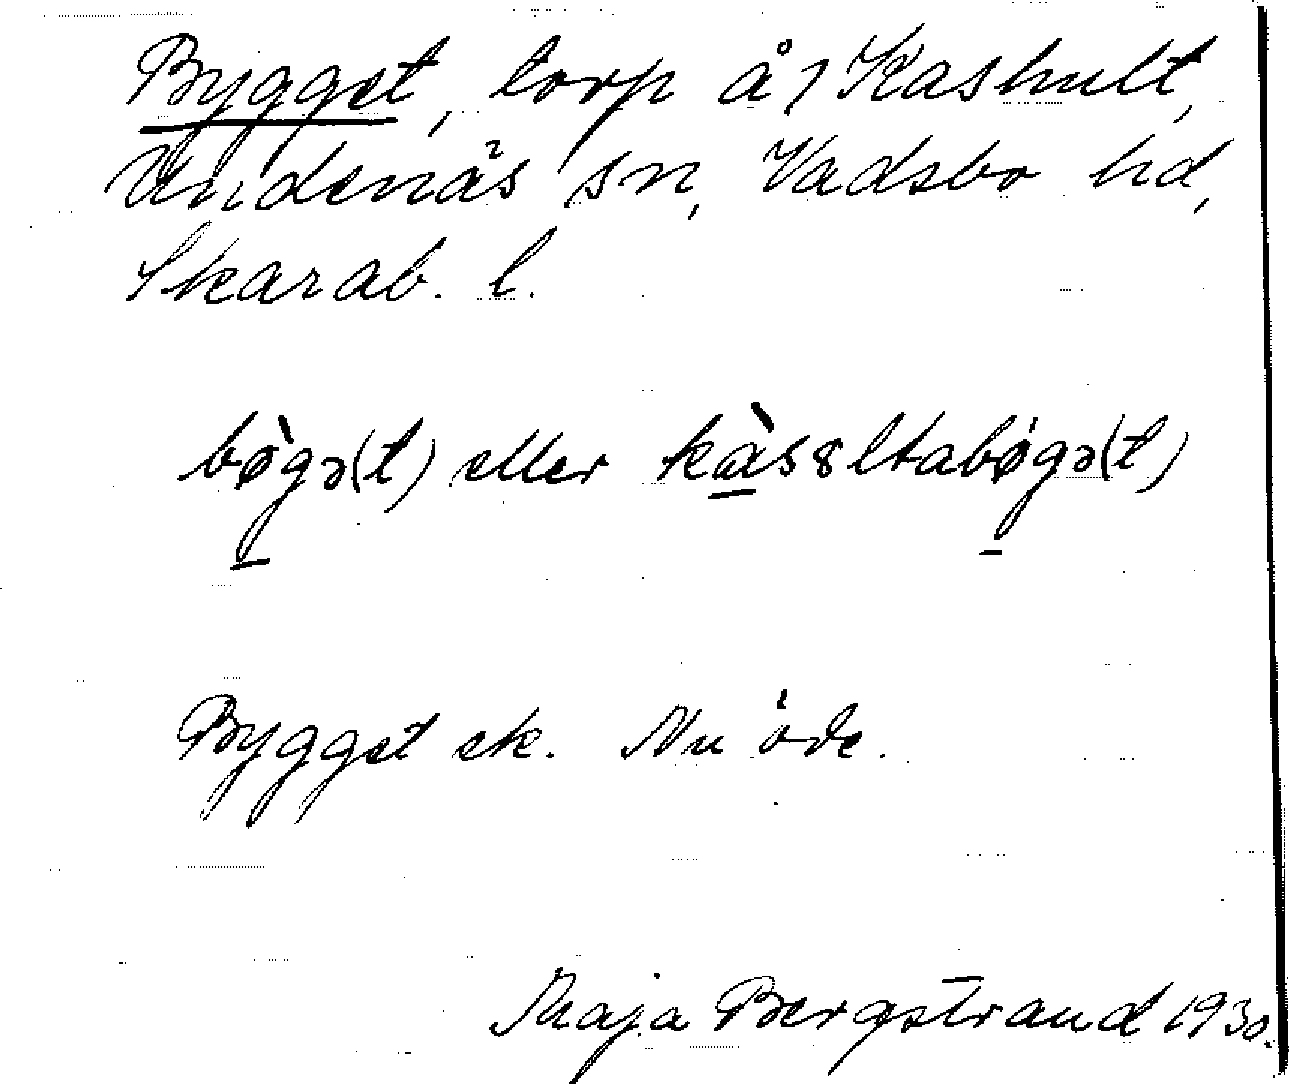 Bygget, torp å/ Kashult,
Undenäs sn, Vadsbo hd,
Skarab. l.
bø̀gə(t) eller kàssltabøgə(t)
Bygget ek. Nu öde.
Maja Bergstrand 1930.